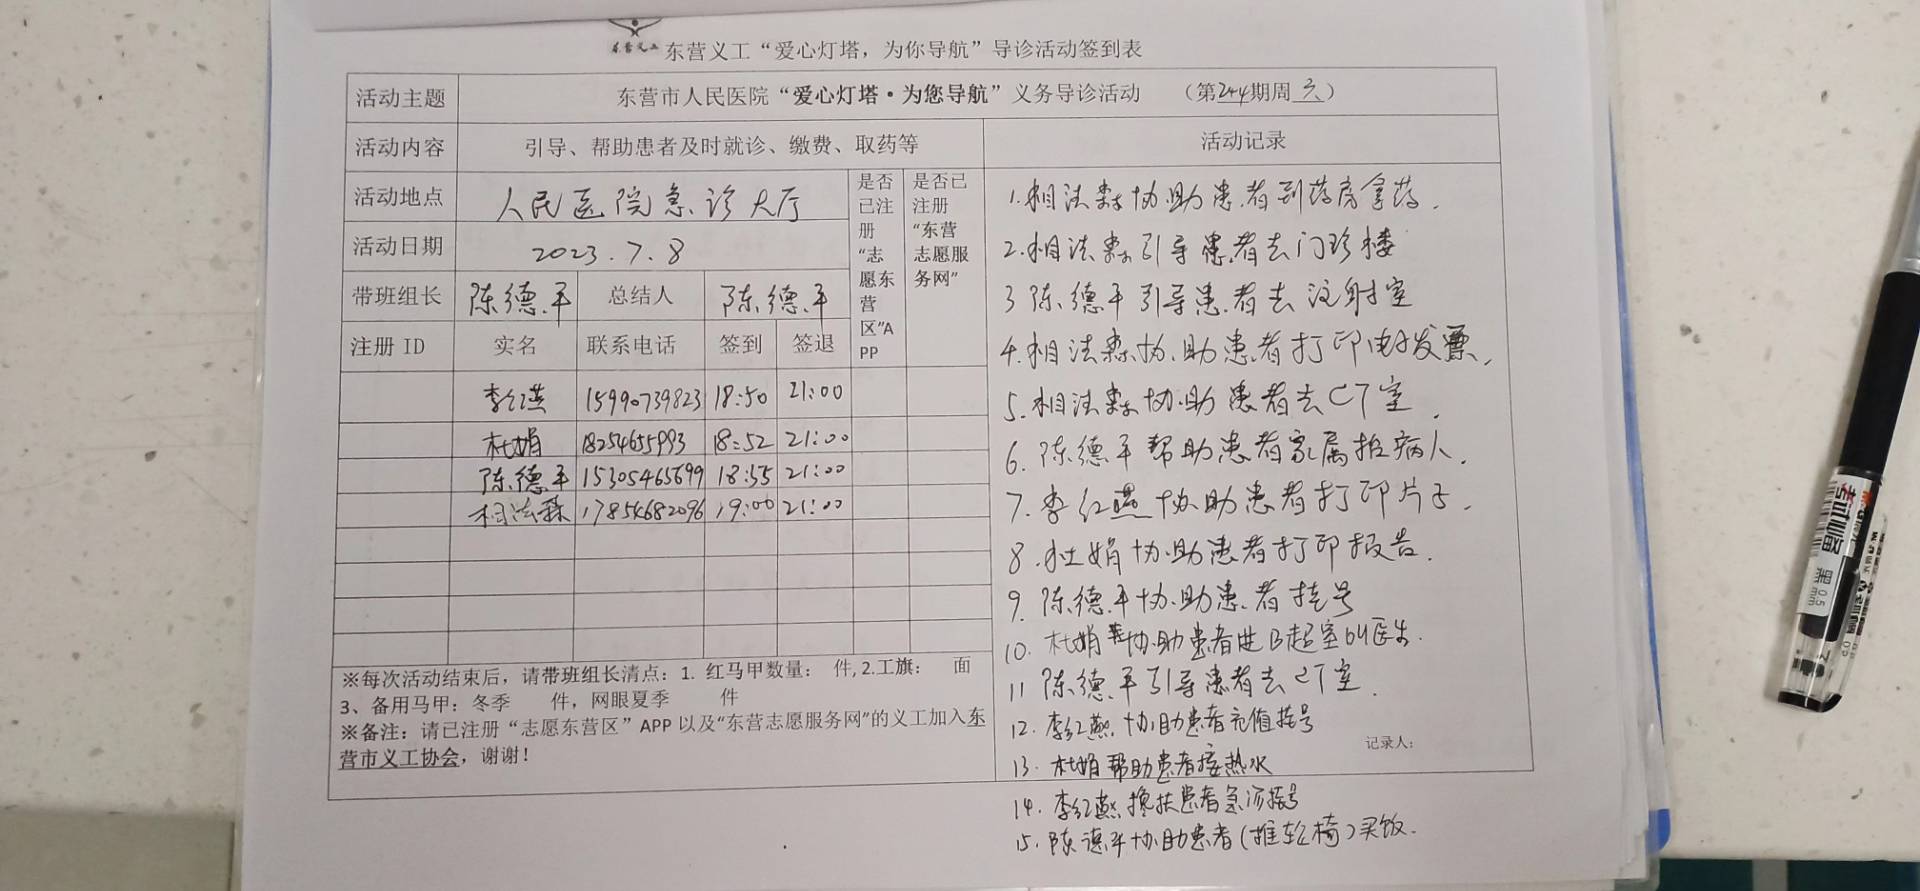 东营义工 东营义工“爱心灯塔，为你导航”导诊活动签到表
活动主题 东营市人民医院“爱心灯塔·为您导航”义务导诊活动 （第244期周六）
活动内容 引导、帮助患者及时就诊、缴费、取药等 活动记录
活动地点 人民医院急诊大厅
活动日期 2023.7.8
带班组长 陈德平 总结人 陈德平
注册 ID 实名 联系电话 签到 签退
是否
已注
册
“志
愿东
营
区”A
PP
是否已
注册
“东营
志愿服
务网”
李红燕 15990739823 18:50 21:00
杜娟 18254655993 18:52 21:00
陈德平 15305465699 18:55 21:00
相法森 17854682096 19:00 21:00
※每次活动结束后，请带班组长清点：1. 红马甲数量： 件, 2.工旗： 面
3、备用马甲：冬季 件，网眼夏季 件
※备注：请已注册“志愿东营区”APP 以及“东营志愿服务网”的义工加入东
营市义工协会，谢谢！
1.相法森协助患者到药房拿药.
2.相法森引导患者去门珍楼
3 陈德平引导患者去注射室
4.相法森协助患者打印电子发票.
5.相法森协助患者去CT室.
6.陈德平帮助患者家属抬病人.
7.李红燕协助患者打印片子.
8.杜娟协助患者打印报告.
9.陈德平协助患者挂号
10.杜娟协助患者进B超室叫医生.
11 陈德平引导患者去CT室.
12.李红燕协助患者充值挂号
记录人：
13.杜娟帮助患者接热水
14.李红燕搀扶患者急诊挂号
15.陈德平协助患者(推轮椅)买饭.
老武器
黑
0.5
mm